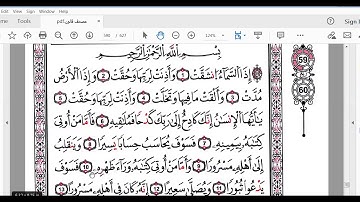 مصحف قالون.pdf
590 / 627
بِسْمِ اللَّهِ الرَّحْمَٰنِ الرَّحِيمِ
إِذَا السَّمَاءُ انشَقَّتْ 1 وَأَذِنَتْ لِرَبِّهَا وَحُقَّتْ 2 وَإِذَا الْأَرْضُ
مُدَّتْ 3 وَأَلْقَتْ مَا فِيهَا وَتَخَلَّتْ 4 وَأَذِنَتْ لِرَبِّهَا وَحُقَّتْ 5
يَا أَيُّهَا الْإِنسَانُ إِنَّكَ كَادِحٌ إِلَىٰ رَبِّكَ كَدْحًا فَمُلَاقِيهِ 6 فَأَمَّا مَنْ أُوتِيَ
كِتَابَهُ بِيَمِينِهِ 7 فَسَوْفَ يُحَاسَبُ حِسَابًا يَسِيرًا 8 وَيَنقَلِبُ
إِلَىٰ أَهْلِهِ مَسْرُورًا 9 وَأَمَّا مَنْ أُوتِيَ كِتَابَهُ وَرَاءَ ظَهْرِهِ 10 فَسَوْفَ
يَدْعُوا ثُبُورًا 11 وَيُصَلَّىٰ سَعِيرًا 12 إِنَّهُ كَانَ فِي أَهْلِهِ مَسْرُورًا 13
59
60